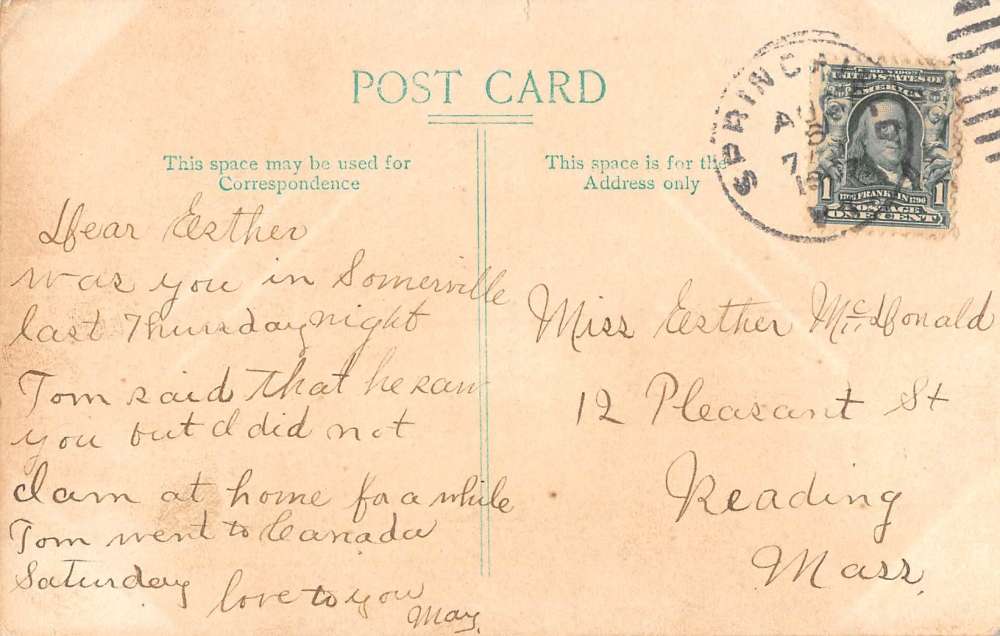 POST CARD
This space may be used for
Correspondence
This space is for the
Address only
UNITED STATES OF
AMERICA
1 FRANKLIN 1790 1
POSTAGE
ONE CENT
Dear Esther
was you in Somerville
last Thursday night
Tom said that he saw
you but I did not
I am at home for a while
Tom went to Canada
Saturday love to you
May.
Miss Esther McDonald
12 Pleasant St
Reading
Mass